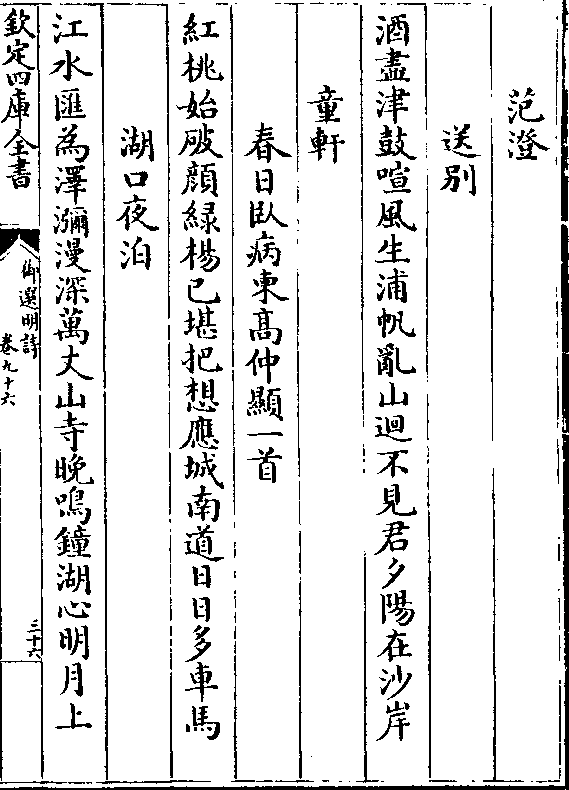 范澄
送别
酒盡津鼓喧風生浦帆亂山迴不見君夕陽在沙岸
童軒
春日臥病柬髙仲顯一首
紅桃始破顔緑楊已堪把想應城南道日日多車馬
湖口夜泊
江水匯為澤瀰漫深萬丈山寺晚鳴鐘湖心明月上
欽定四庫全書
御選明詩
卷九十六
三十六